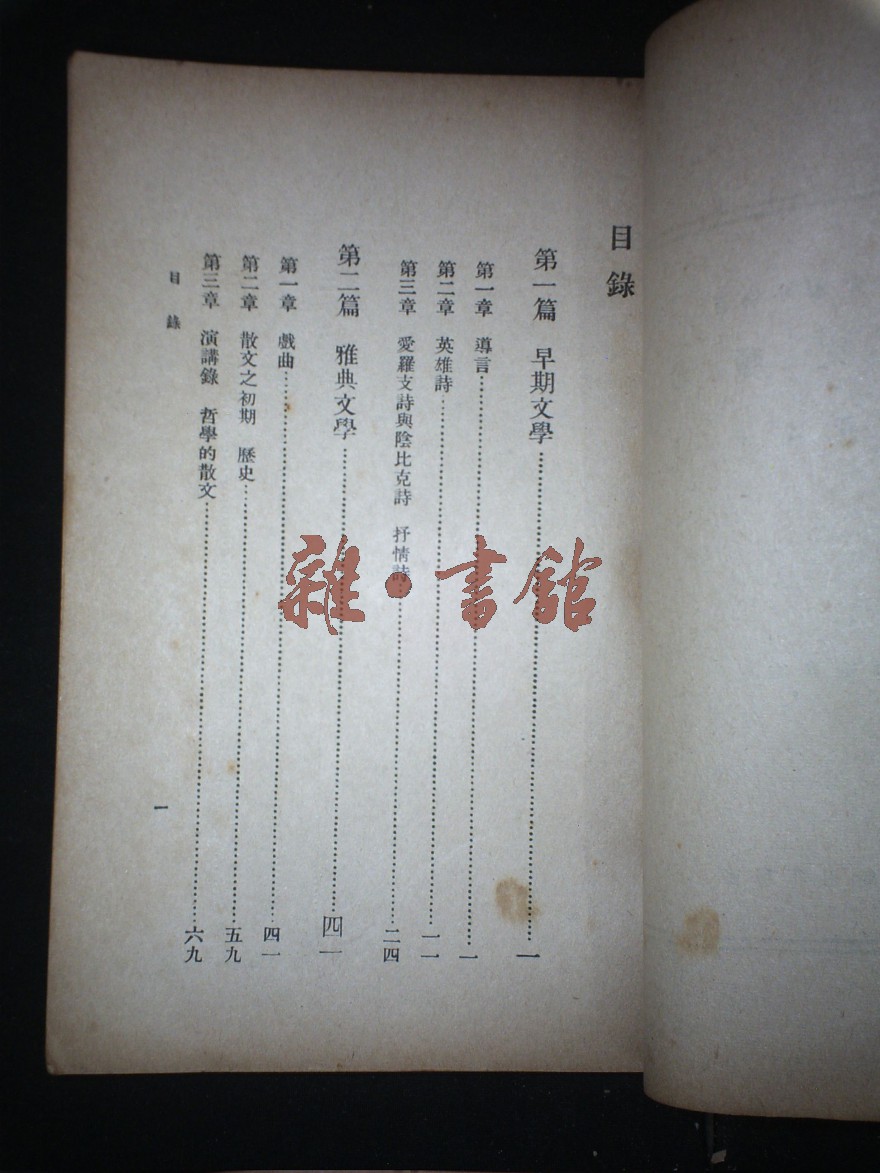 目錄
第一篇 早期文學……一
第一章 導言……一
第二章 英雄詩……一一
第三章 愛羅支詩與陰比克詩 抒情詩……二四
第二篇 雅典文學……四一
第一章 戲曲……四一
第二章 散文之初期 歷史……五九
第三章 演講錄 哲學的散文……六九
目錄
一
雜·書館